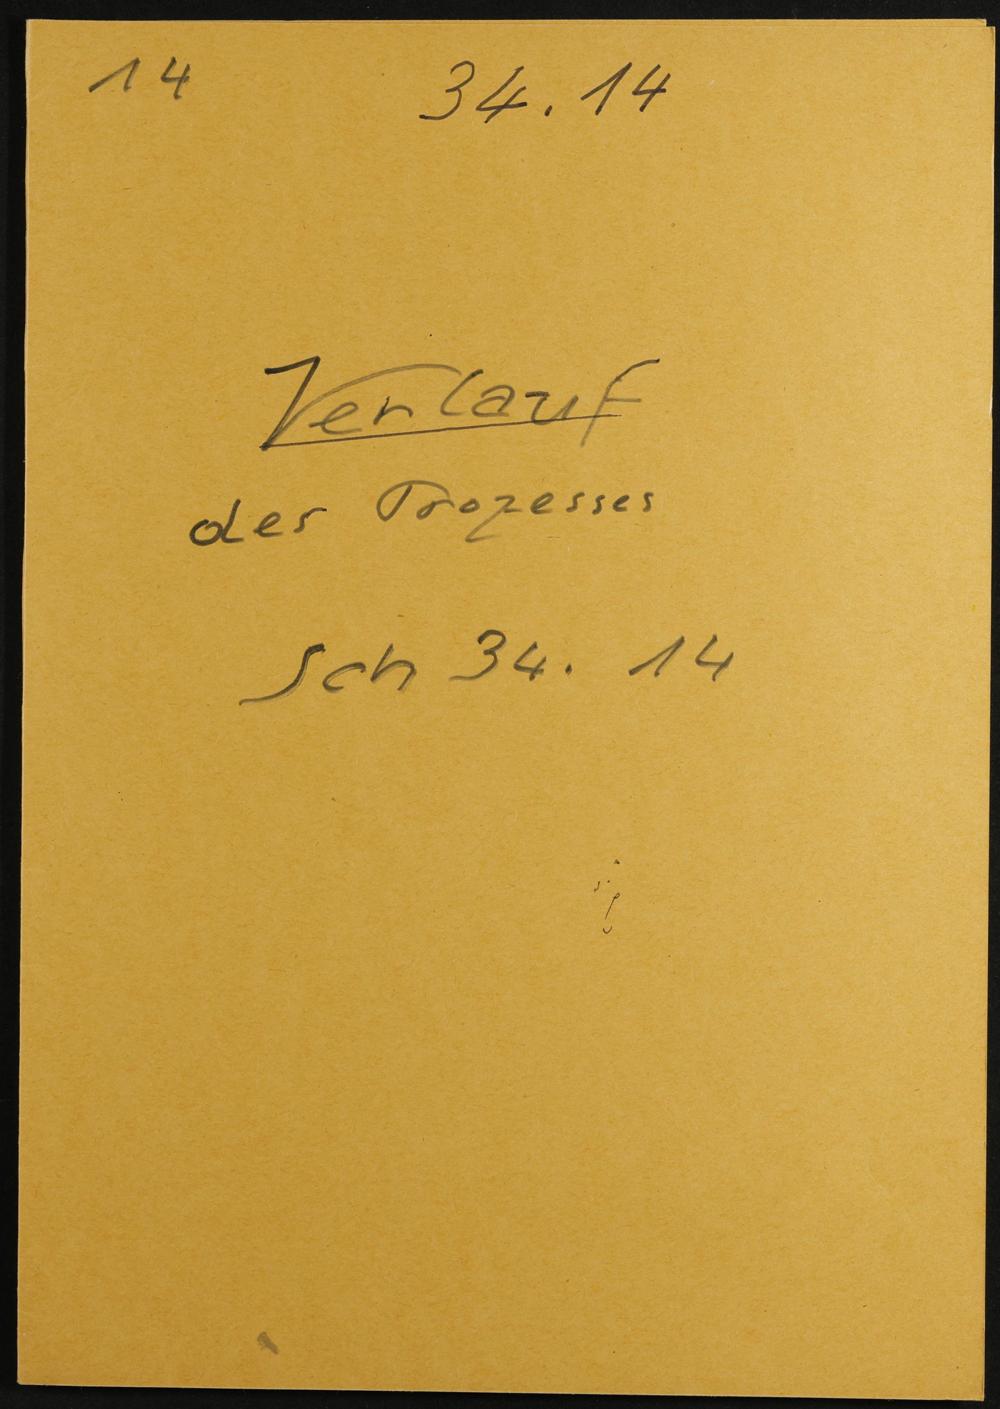 14 34.14
Verlauf
des Prozesses
Sch 34. 14